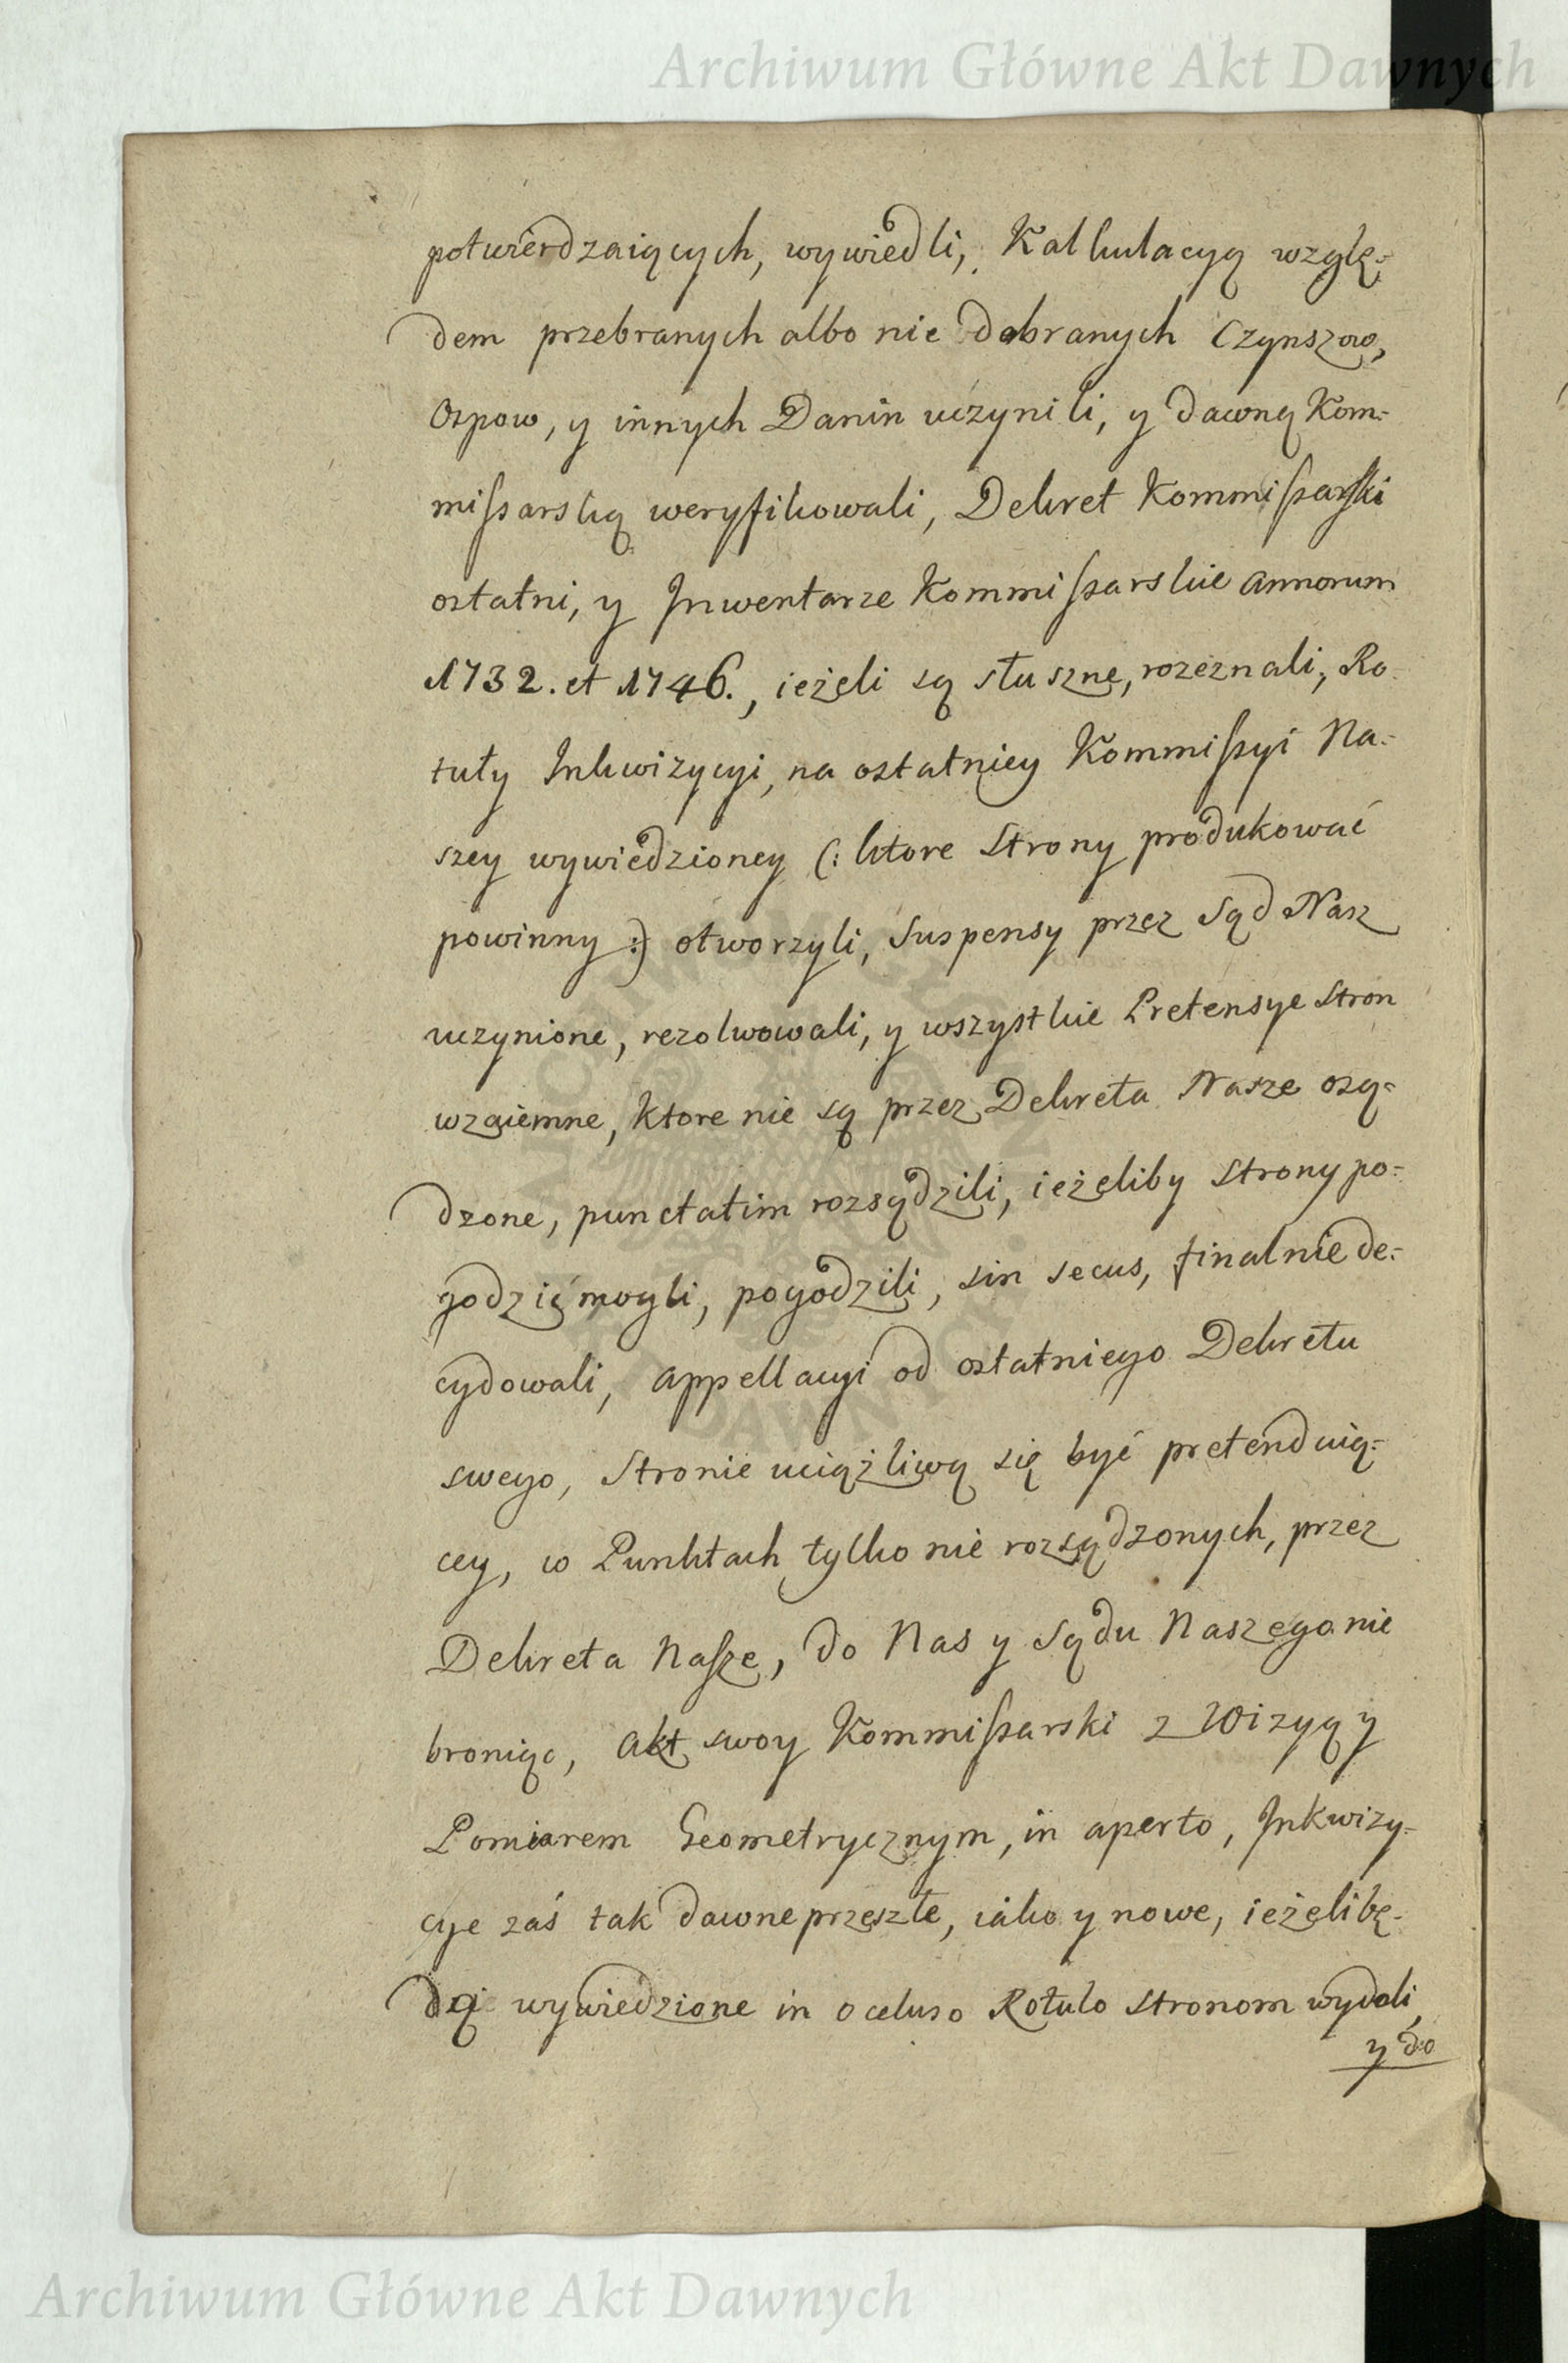 Archiwum Główne Akt Dawnych
potwierdzaiących, wywiedli, Kalkulacyą wzglę-
dem przebranych albo nie dobranych Czynszow,
Ospow, y innych Danin uczynili, y dawną Kom-
missarską weryfikowali, Dekret Kommissarski
ostatni, y Inwentarze Kommissarskie Annorum
1732. et 1746., ieżeli są słuszne, rozeznali, Ro-
tuły Inkwizycyi, na ostatniey Kommissyi Na-
szey wywiedzioney (: ktore Strony produkować
powinny :) otworzyli, Suspensy przez Sąd Nasz
uczynione, rezolwowali, y wszystkie Pretensye Stron
wzaiemne, ktore nie są przez Dekreta Nasze osą-
dzone, punctatim rozsądzili, ieżeliby Strony po-
godzić mogli, pogodzili, sin secus, finalnie de-
cydowali, Appellacyi od ostatniego Dekretu
swego, Stronie uciążliwą się być pretenduią-
cey, w Punktach tylko nie rozsądzonych, przez
Dekreta Nasze, do Nas y Sądu Naszego nie
broniąc, Akt swoy Kommissarski z Wizyą y
Pomiarem Geometrycznym, in aperto, Inkwizy-
cye zaś tak dawne przeszłe, iako y nowe, ieżeli bę-
dą wywiedzione in ocluso Rotulo Stronom wydali,
y do
Archiwum Główne Akt Dawnych